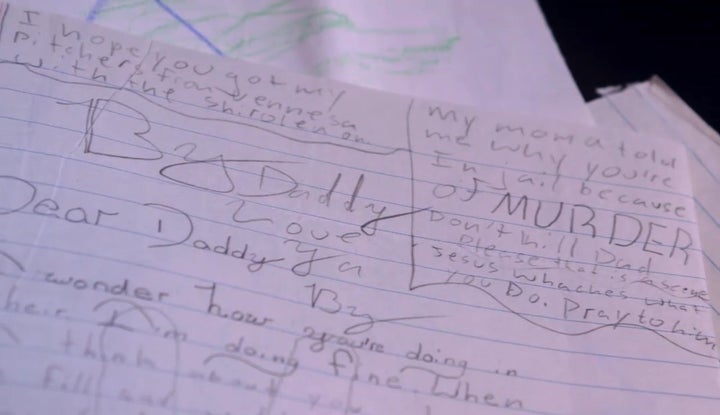 I hope you got my
pitchers from
with the
By Daddy
Love
Ya
By
My mom a told
me why you're
In jail because
of MURDER
Don't kill Dad
Please that is a
Jesus whaches what
you Do. Pray to him
Dear Daddy
I wonder how you're doing in
I'm doing fine. When
I think about you I